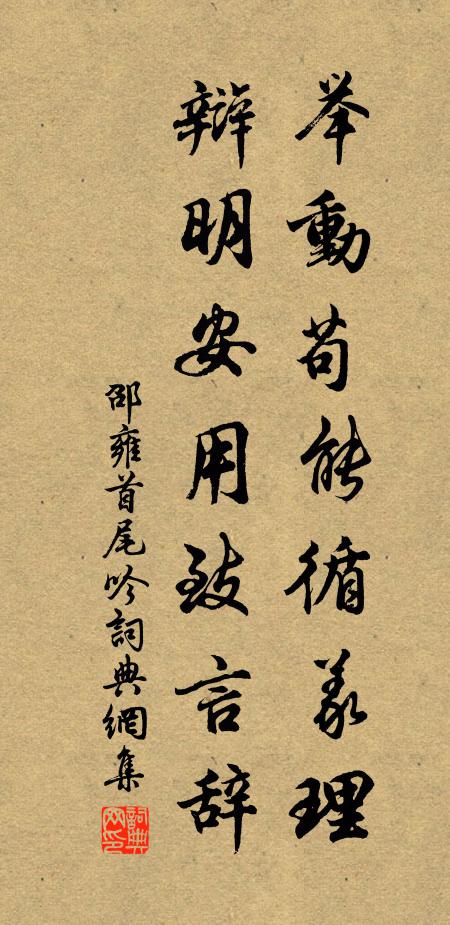 举動苟能循義理
辯明安用致言辞
邵雍首尾吟詞典網集
詞典网印